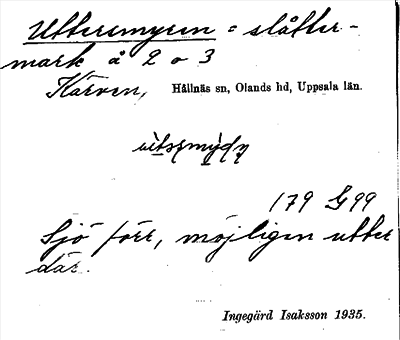 Uttersmyren = slåtter-
mark å 2 o 3
Kärven, Hållnäs sn, Olands hd, Uppsala län.
179 G99
Sjö förr, möjligen utter
där.
Ingegärd Isaksson 1935.